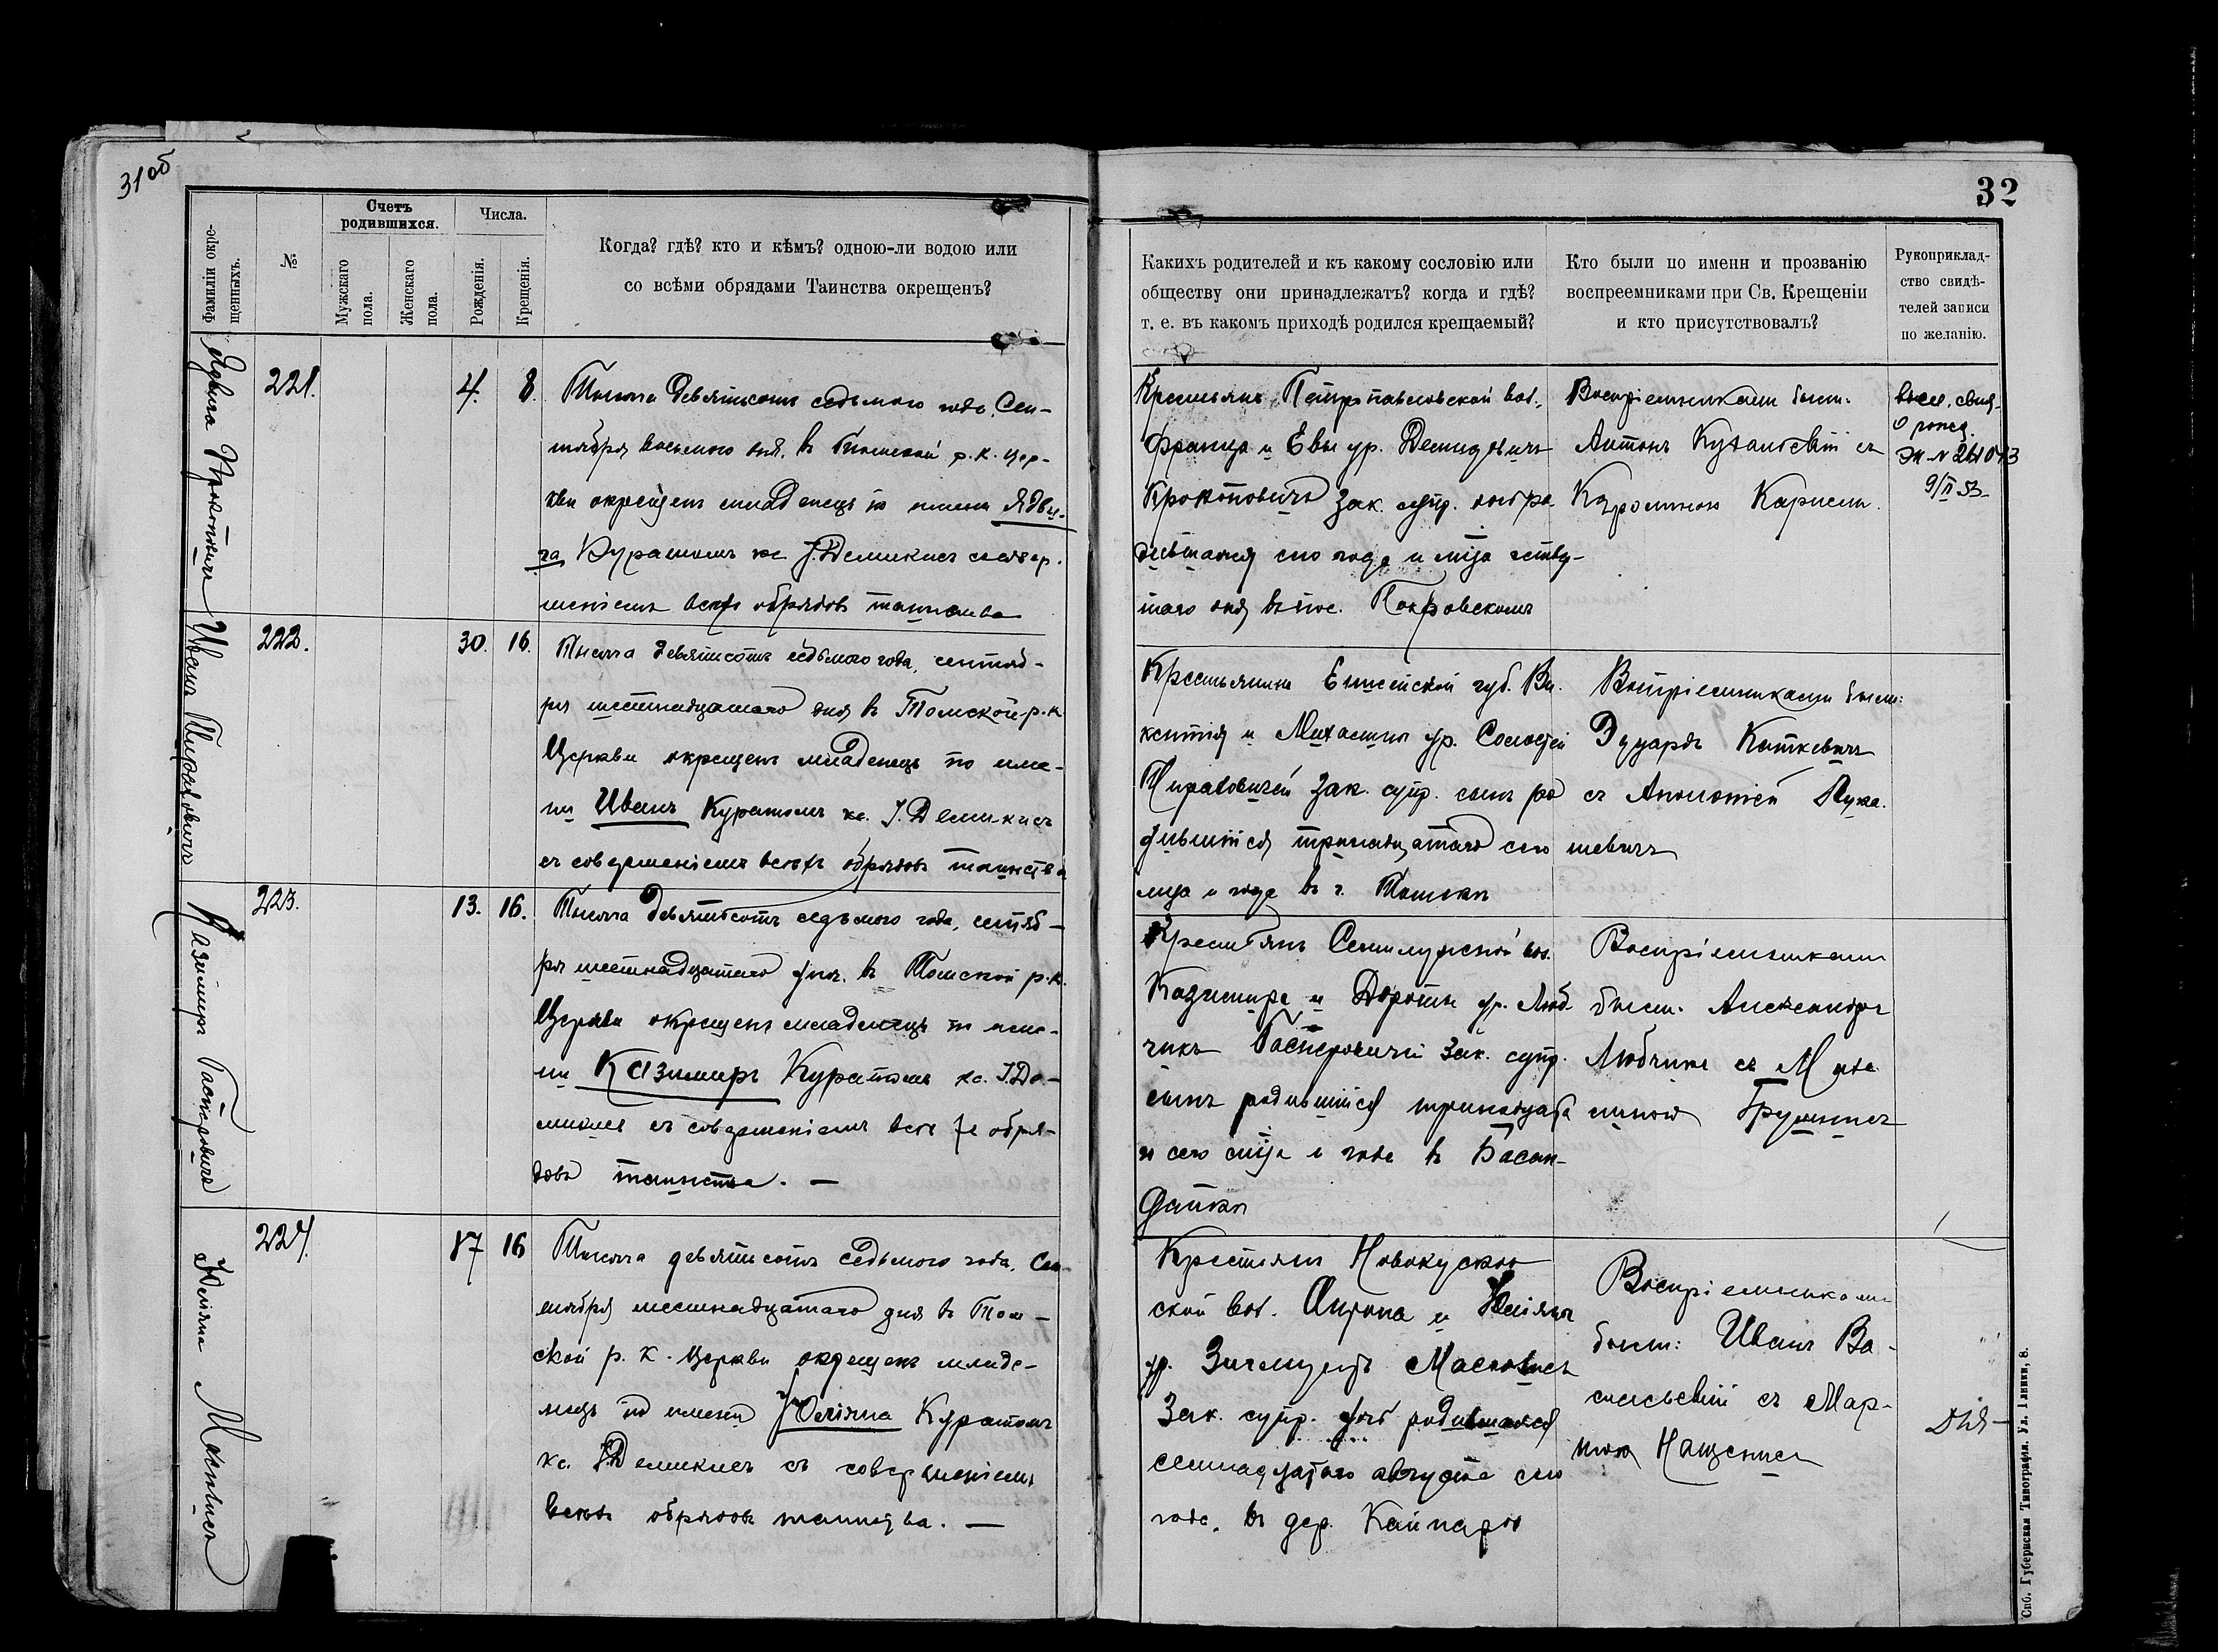 31об
32
Фамиліи окре-
щенныхъ.
№
Счетъ
родившихся.
Мужскаго
пола.
Женскаго
пола.
Числа.
Рожденія.
Крещенія.
Когда? гдѣ? кто и кѣмъ? одною-ли водою или
со всѣми обрядами Таинства окрещенъ?
Какихъ родителей и къ какому сословію или
обществу они принадлежатъ? когда и гдѣ?
т. е. въ какомъ приходѣ родился крещаемый?
Кто были по имени и прозванію
воспреемниками при Св. Крещеніи
и кто присутствовалъ?
Рукоприклад-
ство свидѣ-
телей записи
по желанію.
Ядвига Прокоповичъ
221.
4. 8.
Тысяча девятьсотъ седьмого года, Сен-
тября восьмого дня, въ Томской р. к. цер-
кви окрещенъ младенецъ по имени Ядви-
га Куратомъ кс. J. Демикисъ съ совер-
шеніемъ всѣхъ обрядовъ таинства
Крестьянъ Петропавловской вол.
Франца и Евы ур. Демидовичъ
Прокоповичъ зак. супр. дочь ро-
дившаяся сего года и м-ца четвер-
таго дня въ пос. Покровскомъ
Воспріемниками были:
Антонъ съ
Каролиною
9/II 53
Иванъ Пиратовичъ
222.
30. 16.
Тысяча девятьсотъ седьмого года, сентяб-
ря шестнадцатаго дня въ Томской р. к.
Церкви окрещенъ младенецъ по име-
ни Иванъ Куратомъ кс. J. Демикисъ
съ совершеніемъ всѣхъ обрядовъ таинства
Крестьянина Енисейской губ. Ви-
кентія и Михалины ур.
Пиратовичей зак. супр. сынъ ро
дившійся тринадцатаго сего
м-ца и года въ г. Томскѣ
Воспріемниками были:
Эдуардъ Каткевичъ
съ Аполоніей Лука-
шевичъ
Казимиръ Гасперовичъ
223.
13. 16.
Тысяча девятьсотъ седьмого года, сентяб-
ря шестнадцатаго дня въ Томской р. к.
Церкви окрещенъ младенецъ по име-
ни Казимиръ Куратомъ кс. J. Де-
микисъ съ совершеніемъ всѣхъ обря-
довъ таинства. —
Крестьянъ Семилужской вол.
Казимира и Дороты ур. Люб-
чикъ Гасперовичей зак. супр.
сынъ родившійся тринадцата
го сего м-ца и года въ Басан-
дайкѣ
Воспріемниками
были: Александръ
Любчикъ съ
Юліяна Масковисъ
224.
17 16
Тысяча девятьсотъ седьмого года, Сен-
тября шестнадцатаго дня въ Том-
ской р. к. Церкви окрещенъ младе-
нецъ по имени Юліяна Куратомъ
кс. J. Демикисъ съ совершеніемъ
всѣхъ обрядовъ таинства. —
Крестьянъ Новокусков-
ской вол. Антона и Юліяны
ур. Масковисъ
Зак. супр. дочь родившаяся
семнадцатаго августа сего
года, въ дер.
Воспріемниками
были: Иванъ Ва-
силевскій съ Мар-
тою
Спб. Губернская Типографія. Ул. Глинки, 8.